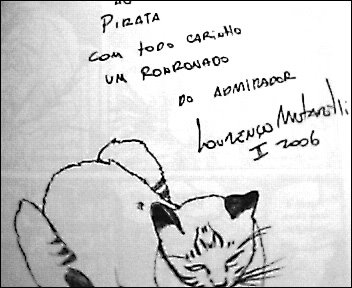 AO
PIRATA
COM TODO CARINHO
UM RONRONADO
DO ADMIRADOR
LOURENÇO Mutarelli
II 2006